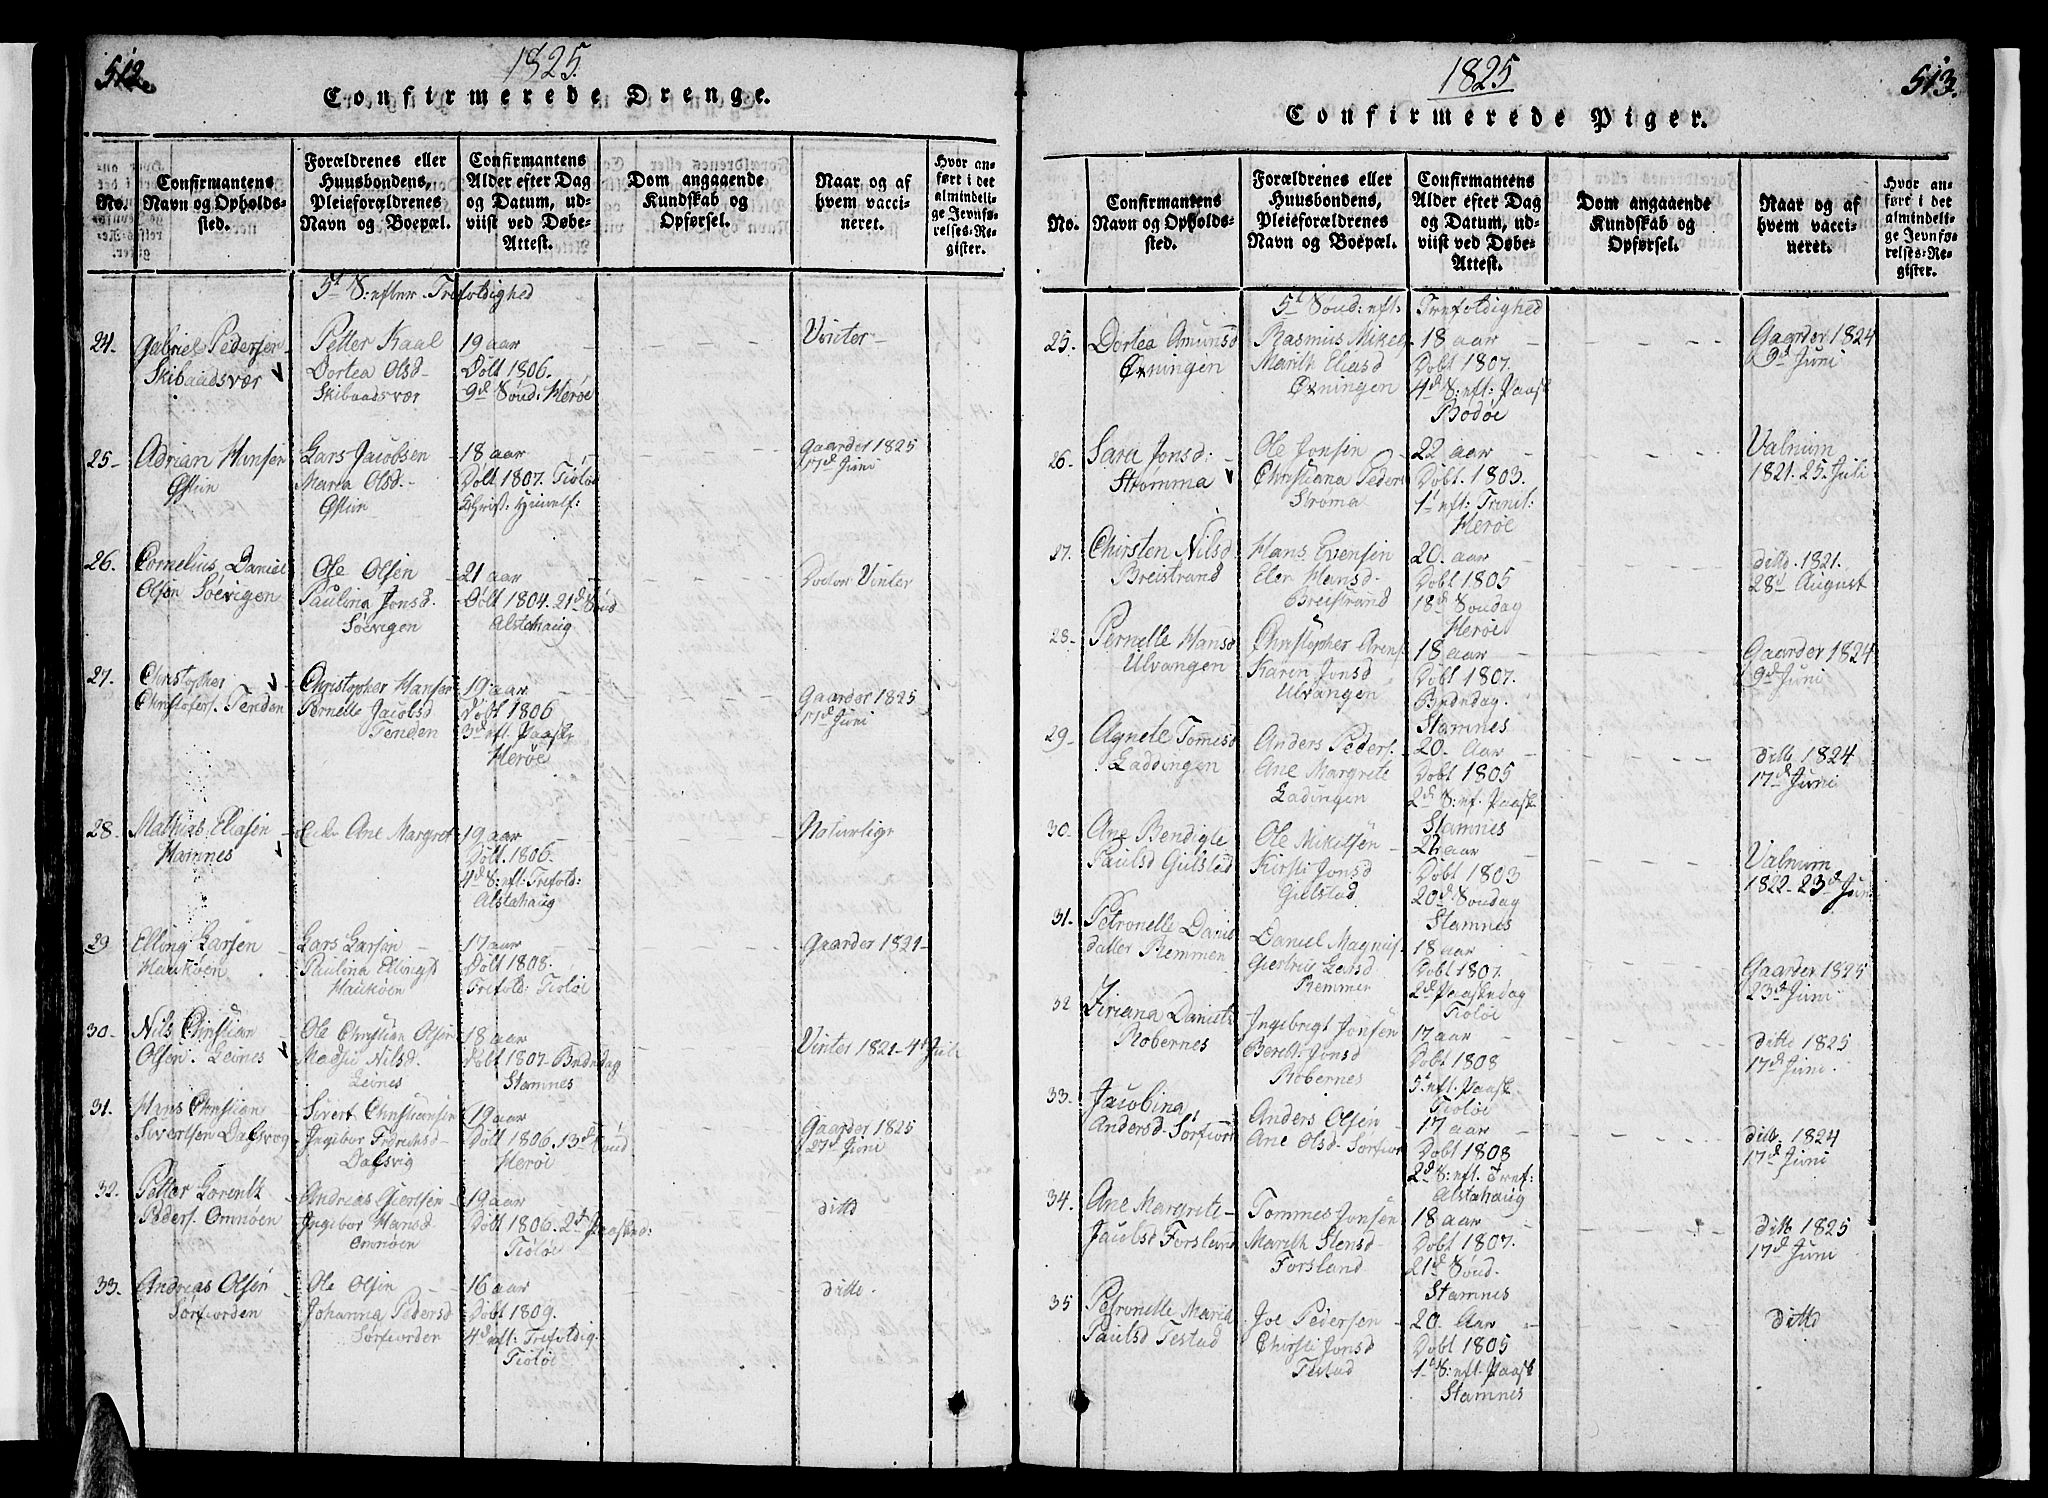 512.
1825.
Confirmerede Drenge.
No.
Confirmantens Navn og Opholdssted.
Forældrenes eller Huusbondens, Pleieforældrenes Navn og Boepæl.
Confirmantens Alder efter Dag og Datum, udviist ved Døbe-Attest.
Dom angaaende Kundskab og Opførsel.
Naar og af hvem vaccineret.
Hvor anført i det almindelige Jevnførelses-Register.
5t S: efter Trefoldighed
24. Gabriel Pedersen
Skibaadsvær
Petter Kaal
Dortea Olsd
Skibaadsvær
19 aar
Døbt 1806.
9d Sønd: Herøe
Vinter
25 Adrian Hansen
Lars Jacobsen
Maria Olsd.
18 aar
Døbt 1807. Tiøtøe
Christ: Himelf:
Gaarder 1825
17d Juni
26. Cornelius Daniel
Olsen Søevigen
Ole Olsen
Paulina Jonsd.
Søevigen
21 aar
Døbt 1804. 21d Sønd
Alstahaug
Doctor Vinter
27. Christopher
Christofers. Tenden
Christopher Hansen
Pernelle Jacobsd
Tenden
19 aar
Døbt 1806
3d eft. Paaske
Herøe
Gaarder 1825
17d Juni
28. Mathias Eliasen
Hamnes
Enke Ane Margret
19 aar
Døbt 1806.
4d S: eft: Trefold:
Alstahaug
Naturlige
29 Elling Larsen
Haukøen
Lars Larsen
Paulina Ellingsd
Haukøen
17 aar
Døbt 1808.
Trefold: Tiøtøe
Gaarder 1821
30. Nils Christian
Olsen Leines
Ole Christian Olsen
Madsu Nilsd.
Leines
18 aar
Døbt 1807. Bededag
Stamnes
Vinter 1821. 4d Juli
31. Hans Christian
Sivertsen Dalsvig
Sivert Christiansen
Ingebor Fredrichsd
Dalsvig
19 aar
Døbt 1806. 13d Sønd
Herøe
Gaarder 1825
27d Juni
32. Petter Lorentz
Peders. Omnøen
Andreas Giertsen
Ingebor Hansd
Omnøen
19 aar
Døbt 1806. 2d Paasked:
Tiøtøe
ditto
33. Andreas Olsen
Sørfiorden
Ole Olsen
Johanna Pedersd
Sørfiorden
16 aar
Døbt 1809.
4d eft: Trefoldig
Tiøtøe
ditto.
513.
1825
Confirmerede Piger.
No.
Confirmantens Navn og Opholdssted.
Forældrenes eller Huusbondens, Pleieforældrenes Navn og Boepæl.
Confirmantens Alder efter Dag og Datum, udviist ved Døbe-Attest.
Dom angaaende Kundskab og Opførsel.
Naar og af hvem vaccineret.
Hvor anført i det almindelige Jevnførelses-Register.
5d Sønd: eft: Trefoldighed
25. Dortea Amunsd
Øxningen
Rasmus Mikels
Marith Eliasd
Øxningen
18 aar
Døbt 1807.
4d S: eft: Paask
Bodøe
Gaarder 1824
9d Juni
26. Sara Jonsd:
Strømma
Ole Jonsen
Christiana Peders
Strøma
22 aar
Døbt. 1803.
1d eft: Trinit:
Herøe
Valnum
1821. 25. Juli
27. Chirsten Nilsd
Breistrand
Hans Evensen
Elen Hansd
Breistrand
20. aar
Døbt 1805
18d Søndag
Herøe
ditto. 1821.
28d August
28. Pernelle Hansd
Ulvangen
Christopher Arens
Karen Jonsd
Ulvangen
18 aar
Døbt 1807.
Bededag.
Stamnes
Gaarder 1824
9d Juni
29. Agnete Tommesd
Laddingen
Anders Peders.
Ane Margrete
Ladingen
20. Aar
Døbt 1805
2d S: ef. Paaske
Stamnes
ditto 1824
17d Juni
30. Ane Bendigte
Paulsd Gulstad
Ole Mikelsen
Kirsti Jonsd
Gulstad
22 aar
Døbt 1803
20d Søndag
Stamnes
Valnum
1822. 23d Juni
31. Petronelle Daniels
datter Remmen
Daniel Magnus
Giertrus Larsd
Remmen
18 aar
Døbt 1807.
2d Paaskedag
Tiøtøe
Gaarder 1825
23d Juni
32 Ziriana Daniels
Robernes
Ingebrigt Jonsen
Bereth Jonsd
Robernes
17 aar
Døbt 1808
5t eft. Paask
Tiøtøe
ditto 1825
17d Juni.
33. Jacobina
Andersd Sørfiord
Anders Olsen
Ane Olsd Sørfior
17 aar
Døbt 1808
2d S: eft. Tref:
Alstahaug
ditto. 1824
17d Juni
34. Ane Margrete
Jacobsd Forsland
Tommes Jonsen
Marith Stensd
Forsland
18 aar
Døbt 1807.
21d Sønd.
Stamnes
ditto 1825
17d Juni
35 Petronelle Maria
Paulsd Testad
Joe Pedersen
Chirsti Jonsd
Testad
20. Aar
Døbt 1805
1d S: eft. Paask
Stamnes
ditto